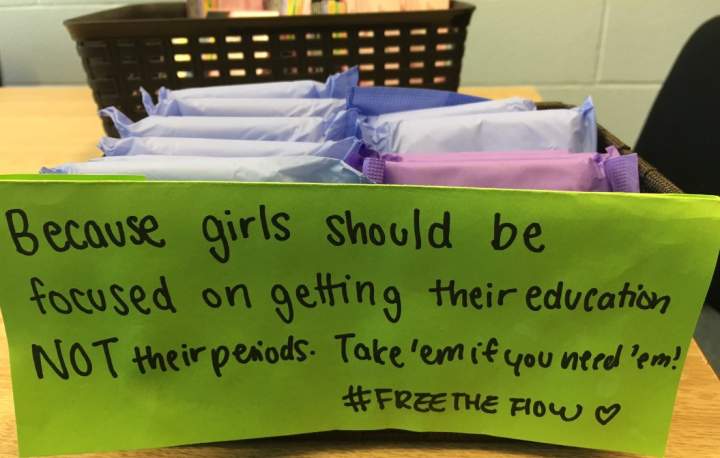 Because girls should be
focused on getting their education
NOT their periods. Take 'em if you need 'em!
#FREE THE FlOW ♡